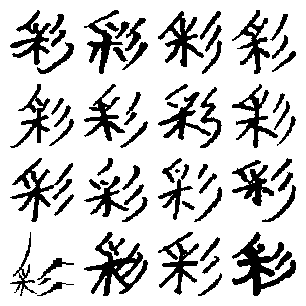 彩彩彩彩
彩彩彩彩
彩彩彩彩
彩彩彩彩